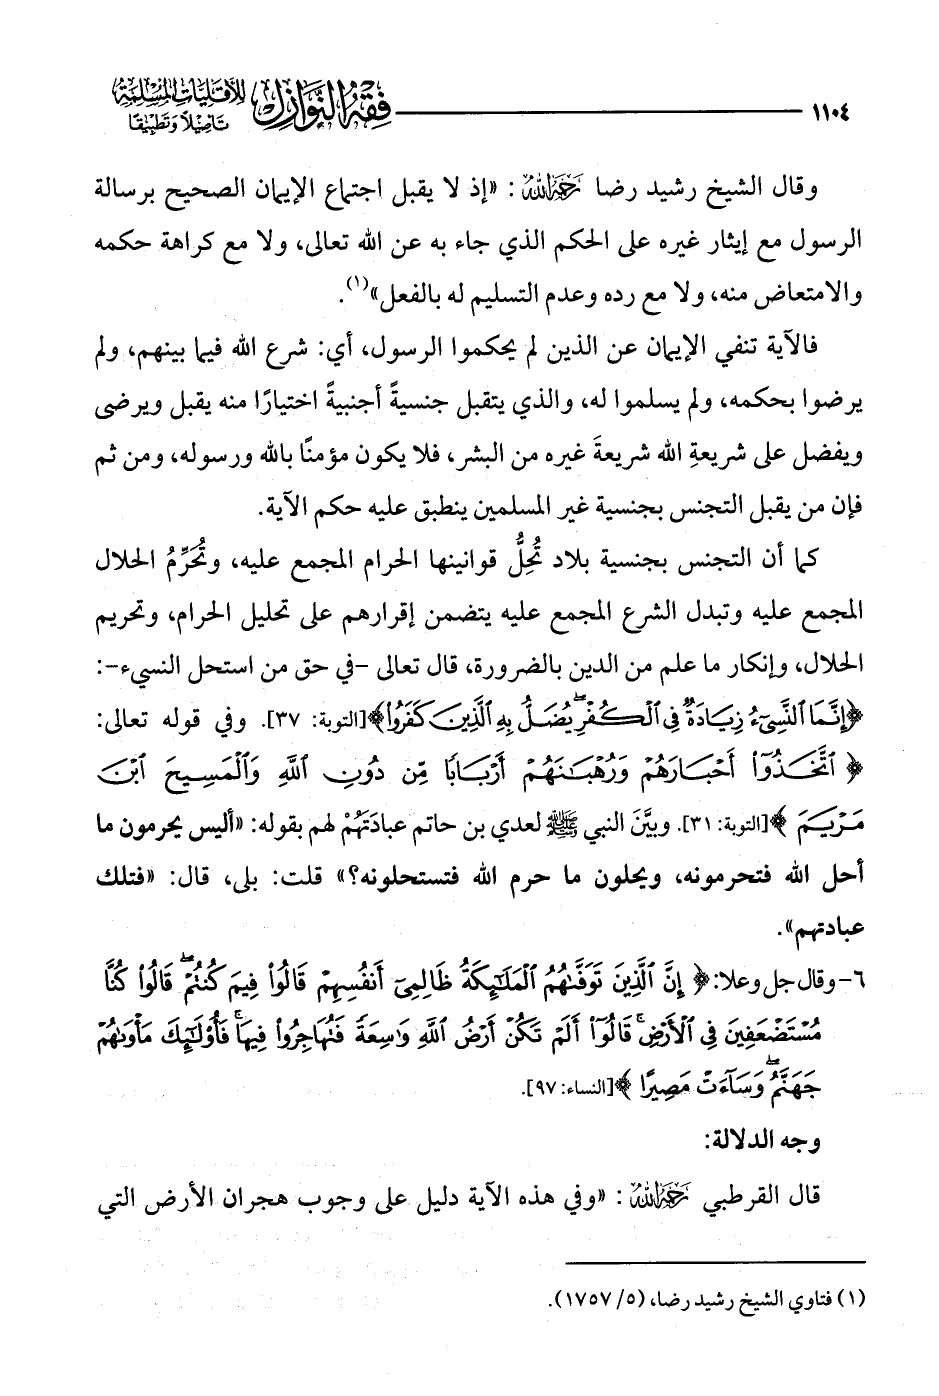 ١١٠٤
فقه النوازل للأقليات المسلمة
تأصيلا وتطبيقا
وقال الشيخ رشيد رضا رحمه الله: «إذ لا يقبل اجتماع الإيمان الصحيح برسالة
الرسول مع إيثار غيره على الحكم الذي جاء به عن الله تعالى، ولا مع كراهة حكمه
والامتعاض منه، ولا مع رده وعدم التسليم له بالفعل»(١).
فالآية تنفي الإيمان عن الذين لم يحكموا الرسول، أي: شرع الله فيما بينهم، ولم
يرضوا بحكمه، ولم يسلموا له، والذي يتقبل جنسيةً أجنبيةً اختيارًا منه يقبل ويرضى
ويفضل على شريعةِ الله شريعةَ غيره من البشر، فلا يكون مؤمنًا بالله ورسوله، ومن ثم
فإن من يقبل التجنس بجنسية غير المسلمين ينطبق عليه حكم الآية.
كما أن التجنس بجنسية بلاد تُحِلُّ قوانينها الحرام المجمع عليه، وتُحَرِّمُ الحلال
المجمع عليه وتبدل الشرع المجمع عليه يتضمن إقرارهم على تحليل الحرام، وتحريم
الحلال، وإنكار ما علم من الدين بالضرورة، قال تعالى -في حق من استحل النسيء-:
﴿إِنَّمَا ٱلنَّسِيٓءُ زِيَادَةٌ فِي ٱلْكُفْرِۖ يُضَلُّ بِهِ ٱلَّذِينَ كَفَرُواْ﴾[التوبة: ٣٧]. وفي قوله تعالى:
﴿ٱتَّخَذُوٓاْ أَحْبَارَهُمْ وَرُهْبَٰنَهُمْ أَرْبَابًا مِّن دُونِ ٱللَّهِ وَٱلْمَسِيحَ ٱبْنَ
مَرْيَمَ﴾[التوبة: ٣١]. وبيَّنَ النبي ﷺ لعدي بن حاتم عبادَتَهُمْ لهم بقوله: «أليس يحرمون ما
أحل الله فتحرمونه، ويحلون ما حرم الله فتستحلونه؟» قلت: بلى، قال: «فتلك
عبادتهم».
٦- وقال جل وعلا: ﴿إِنَّ ٱلَّذِينَ تَوَفَّىٰهُمُ ٱلْمَلَٰٓئِكَةُ ظَالِمِيٓ أَنفُسِهِمْ قَالُواْ فِيمَ كُنتُمْۖ قَالُواْ كُنَّا
مُسْتَضْعَفِينَ فِي ٱلْأَرْضِۚ قَالُوٓاْ أَلَمْ تَكُنْ أَرْضُ ٱللَّهِ وَٰسِعَةً فَتُهَاجِرُواْ فِيهَاۚ فَأُوْلَٰٓئِكَ مَأْوَىٰهُمْ
جَهَنَّمُۖ وَسَآءَتْ مَصِيرًا﴾[النساء: ٩٧].
وجه الدلالة:
قال القرطبي رحمه الله: «وفي هذه الآية دليل على وجوب هجران الأرض التي
(١) فتاوي الشيخ رشيد رضا، (٥/ ١٧٥٧).